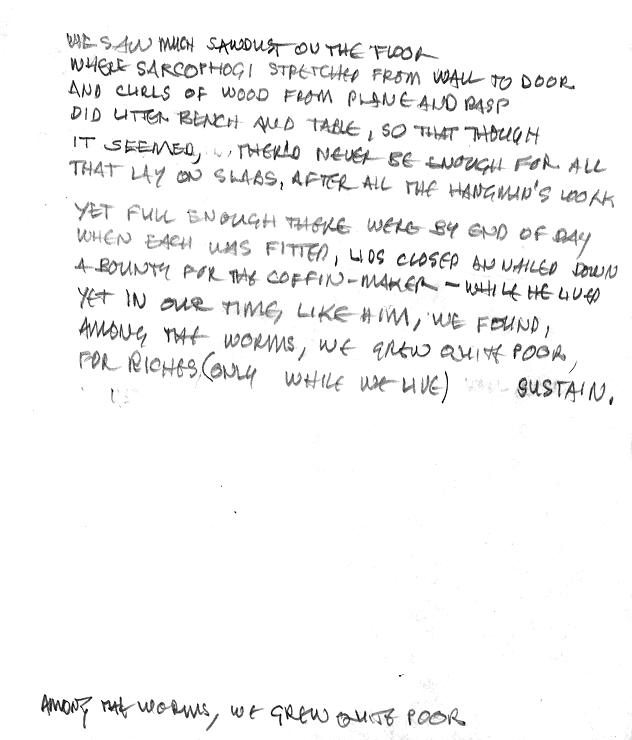 WE SAW MUCH SAWDUST ON THE FLOOR
WHERE SARCOPHOGI STRETCHED FROM WALL TO DOOR
AND CURLS OF WOOD FROM PLANE AND RASP
DID LITTER BENCH AND TABLE, SO THAT THOUGH
IT SEEMED, THER'D NEVER BE ENOUGH FOR ALL
THAT LAY ON SLABS, AFTER ALL THE HANGMAN'S WORK
YET FULL ENOUGH THERE WERE BY END OF DAY
WHEN EACH WAS FITTED, LIDS CLOSED AN NAILED DOWN
A BOUNTY FOR THE COFFIN-MAKER - WHILE HE LIVED
YET IN OUR TIME, LIKE HIM, WE FOUND,
AMONG THE WORMS, WE GREW QUITE POOR,
FOR RICHES (ONLY WHILE WE LIVE) SUSTAIN.
AMONG THE WORMS, WE GREW QUITE POOR